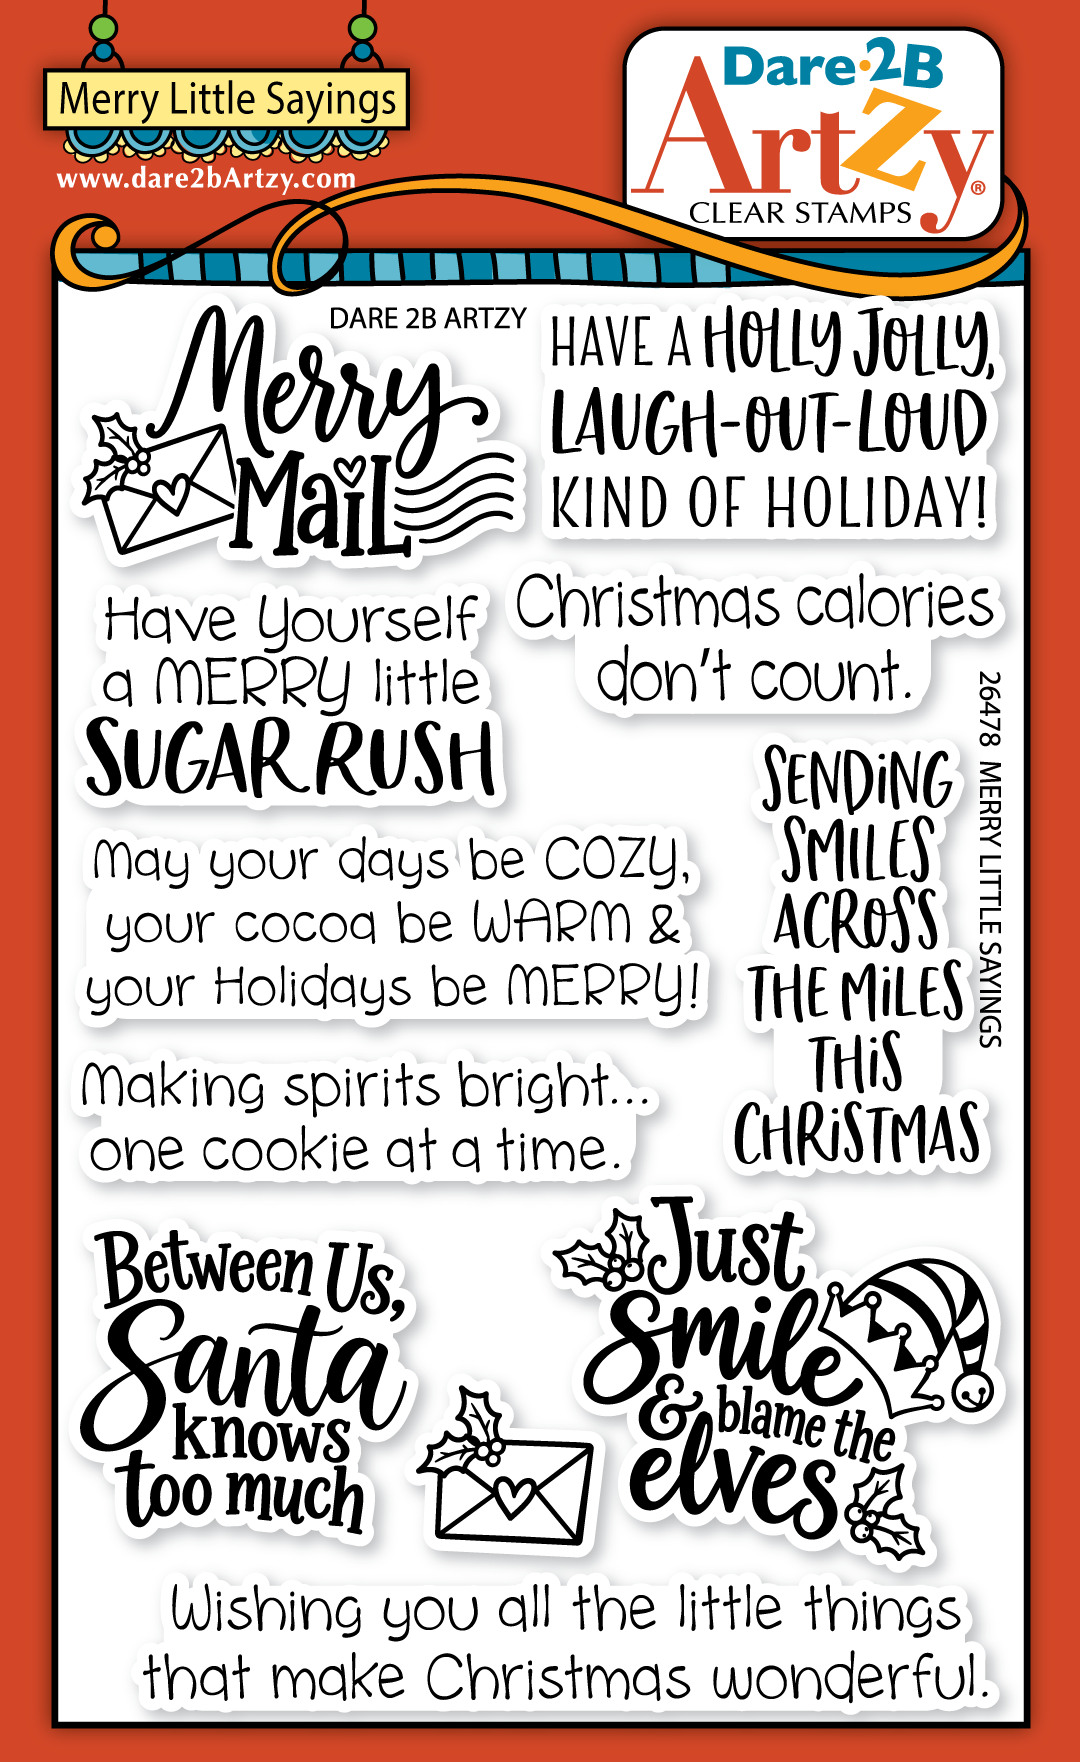 Merry Little Sayings
www.dare2bArtzy.com
Dare·2B
Artzy®
CLEAR STAMPS
DARE 2B ARTZY
Merry
Mail
HAVE A HOLLY JOLLY,
LAUGH-OUT-LOUD
KIND OF HOLIDAY!
Have Yourself
a MERRY little
SUGAR RUSH
Christmas calories
don't count.
26478 MERRY LITTLE SAYINGS
SENDiNG
SMILES
ACROSS
THE MiLES
THiS
CHRiSTMAS
May your days be COZY,
your cocoa be WARM &
your Holidays be MERRY!
Making spirits bright...
one cookie at a time.
Between Us,
Santa
knows
too much
Just
Smile
& blame the
elves
Wishing you all the little things
that make Christmas wonderful.